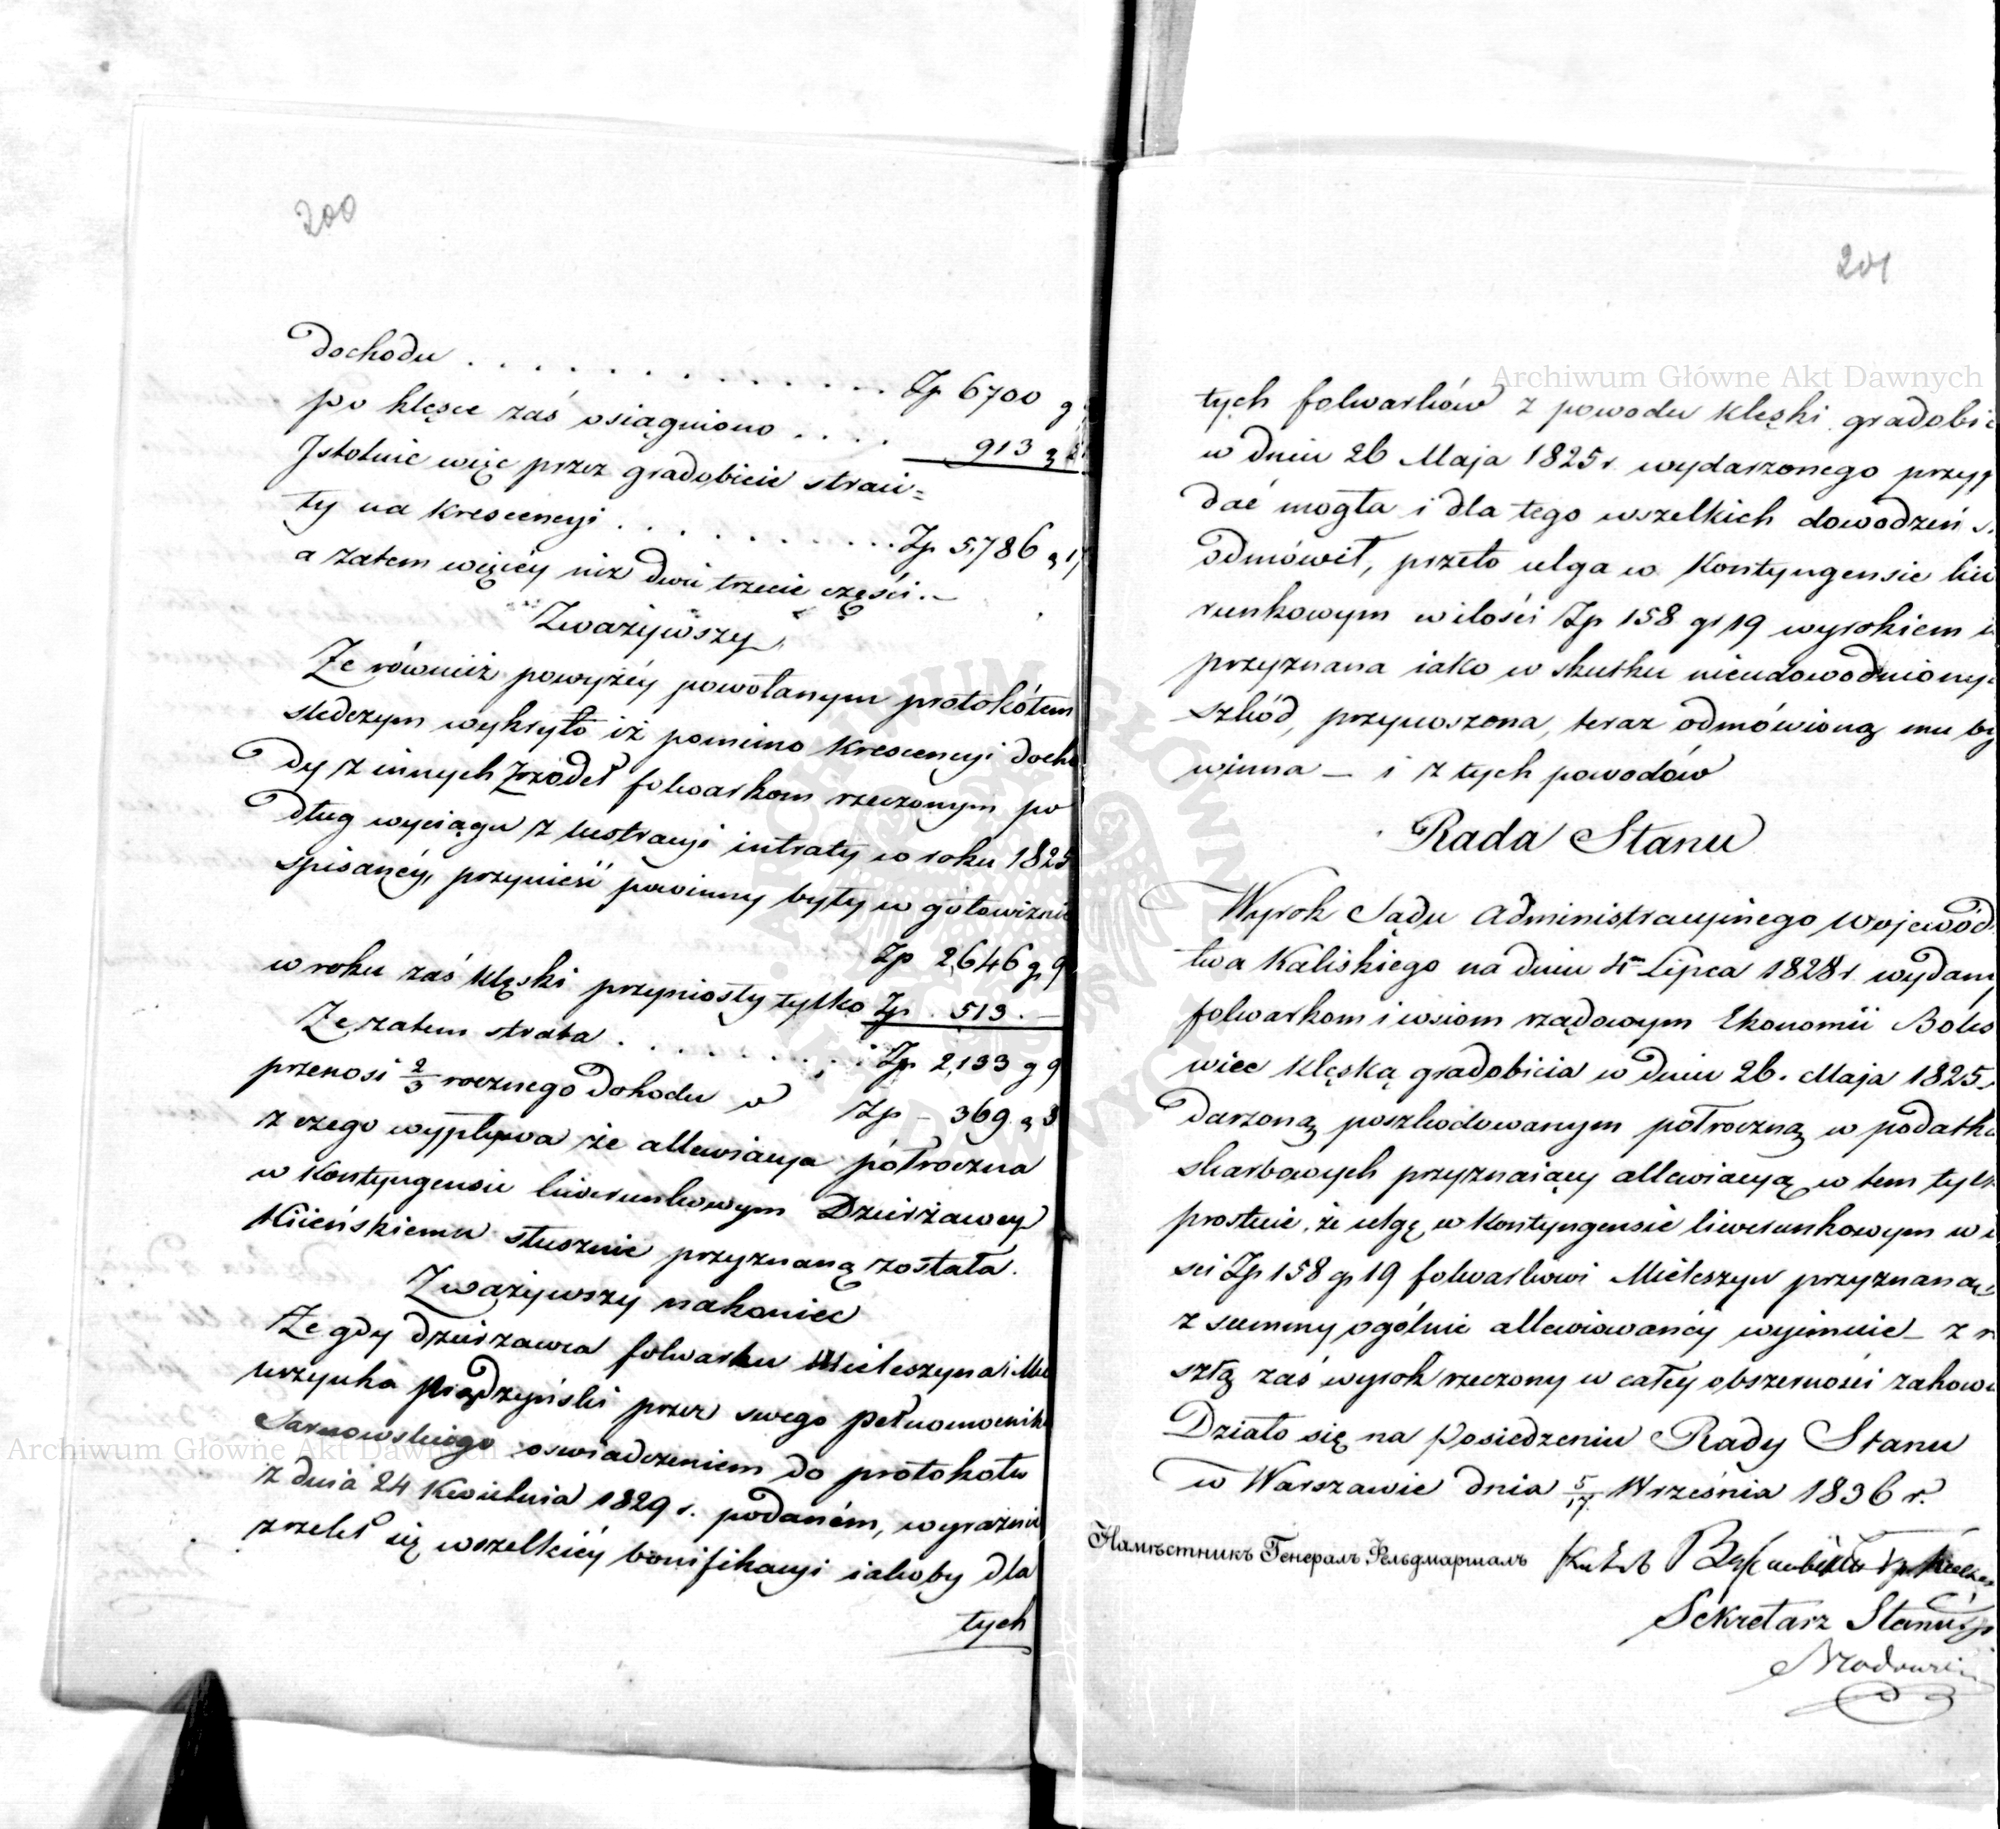 200
dochodu . . . . . . . . . . . . . Zp 6700 g
po klęsce zaś osiągniono . . . . 913
Istotnie więc przez gradobicie straci=
ty na krescencyi . . . . . . . . . Zp 5,786 g 17
a zatem więcéy niż dwie trzecie części. –
Zważywszy
Że równiéż powyżéy powołanym protokółem
śledczym wykryto iż pomimo krescencyi docho
dy z innych źrzódeł folwarkom rzeczonym po
dług wyciągu z lustracyi intraty w roku 1825
spisanéy, przynieść powinny były w gotowiźnie
Zp 2,646 g 9
w roku zaś klęski przyniosły tylko Zp . 513 . –
Że zatem strata . . . . . . . . Zp 2,133 g 9
przenosi 2/3 rocznego dohodu o Zp – 369 g 3
z czego wypływa że allewiacya półroczna
w Kontyngensie liwerunkowym Dzierżawcy
Kiieńskiemu słusznie przyznaną została.
Zważywszy nakoniec
Że gdy dzierzawca folwarku Mieleszyna i Mie
urzynka Prądzyński przez swego pełnomocnika
Sarnowskiego oswiadczeniem do protokołu
z dnia 24 Kwietnia 1829 r. podaném, wyraźnie
zrzekł się wszelkiéy bonifikacyi iakoby dla
tych
201
tych folwarków z powodu klęski gradobi
w dniu 26 Maja 1825 r. wydarzonego przy
dać mogła i dla tego wszelkich dowodzeń
odmówił, przeto ulga w Kontyngensie liw
runkowym w ilości Zp 158 gr 19 wyrokiem
przyznana iako w skutku nieudowodniony
szkód, przywoszona, teraz odmówioną mu by
winna – i z tych powodów
Rada Stanu
Wyrok Sądu Administracyinego Wojewód
twa Kaliskiego na dniu 4m Lipca 1828 r. wydany
folwarkom i wsiom rządowym Ekonomii Boles
wiec klęską gradobicia w dniu 26. Maja 1825
darzoną poszkodowanym półroczną w podatka
skarbowych przyznaiący allewiacyą w tem tylk
prostuie, że ulgę w Kontyngensie liwerunkowym w i
sci Zp 158 gr 19 folwarkowi Mieleszyn przyznaną
z summy ogólnie allewiowanéy wyimuie – z r
sztą zaś wyrok rzeczony w całéy obszerności zahow
Działo się na posiedzeniu Rady Stanu
w Warszawie dnia 5/17. Września 1836 r.
Намѣстникъ Генералъ Фельдмаршалъ
Sekretarz Stanu
Archiwum Główne Akt Dawnych
Archiwum Główne Akt Dawnych
ARCHIWUM GŁÓWNE AKT DAWNYCH